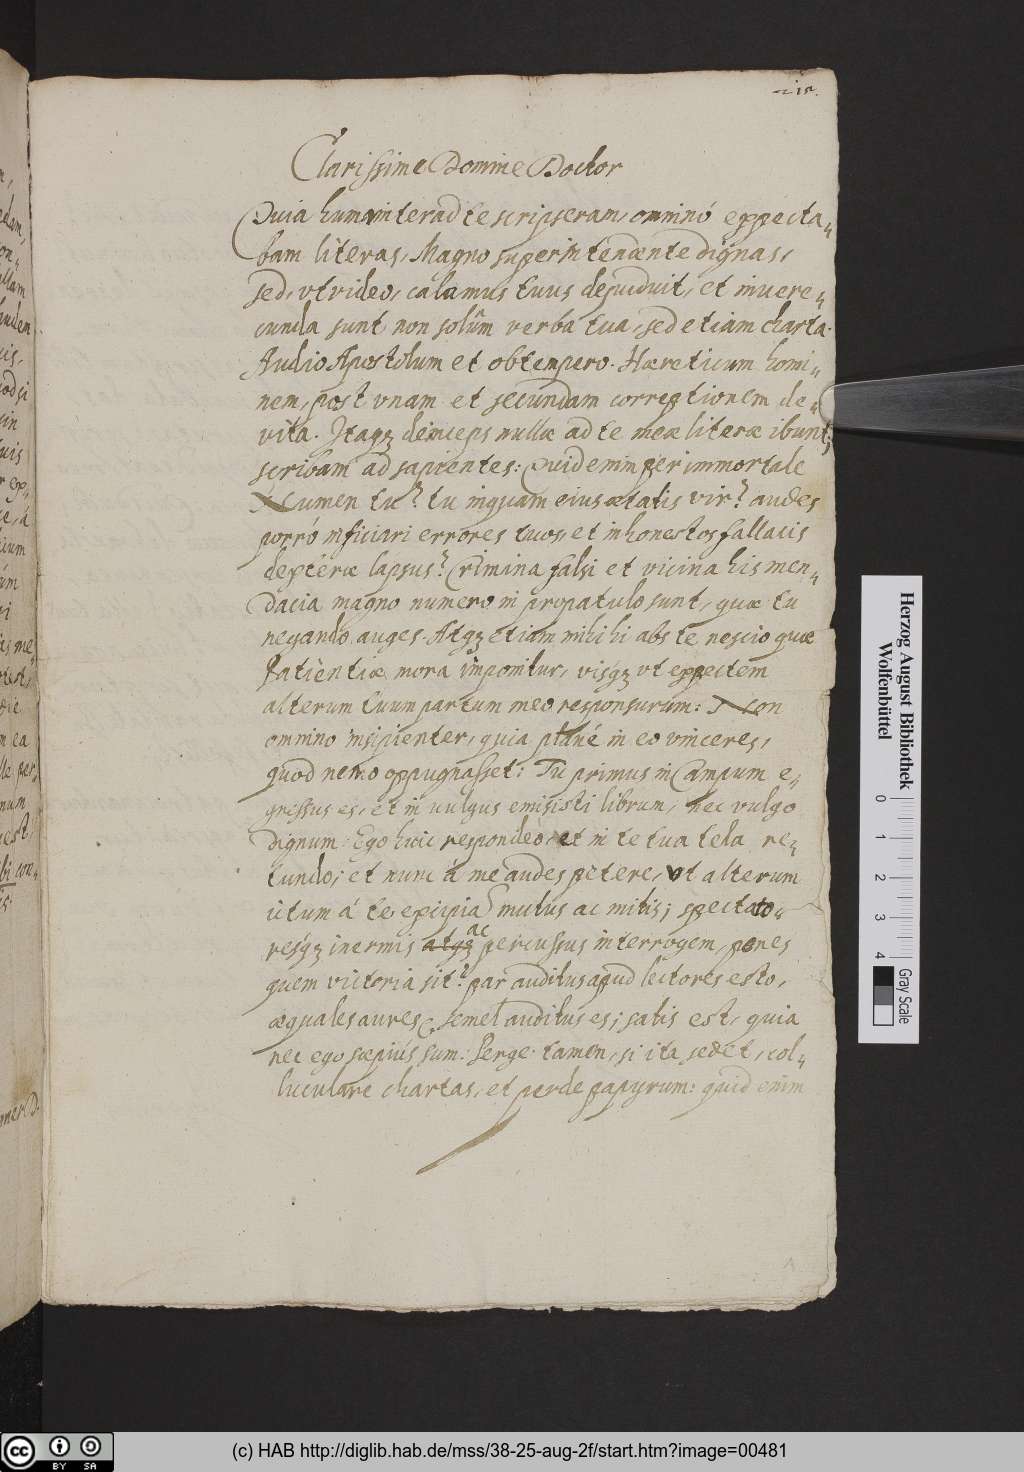 215.
Clarissime Domine Doctor
Quia humaniter ad te scripseram, omninó expecta„
bam literas, Magno superintendente dignas,
sed, vt video, calamus tuus depuduit, et inuere„
cunda sunt non solûm verba tua, sed etiam charta.
Audio Apostolum et obtempero. Hæreticum homi„
nem, post vnam et secundam correptionem de„
vita. Itaqz deinceps nullæ ad te meæ literæ ibunt;
scribam ad sapientes: Quid enim per immortale
Numen tu? tu inquam eius ætatis vir? audes
porró inficiari errores tuos, et inhonestos fallacis
dexteræ lapsus? Crimina falsi et vicina his men„
dacia magno numero in propatulo sunt, quæ tu
negando auges. Atqz etiam mihi hi abs te nescio quæ
Patientiæ mora imponitur, visqz vt expectem
alterum tuum partum meo responsurum: Non
omnino insipienter, quia plané in eo vinceres,
quod nemo oppugnasset: Tu primus in Campum e„
gressus es, et in uulgus emisisti librum, nec vulgo
dignum: Ego huic respondeo, et in te tua tela re„
tundo; et nunc á me audes petere, vt alterum
ictum á te excipiam mutus ac mitis; spectato„
resqz inermis atqz ac percussus interrogem, penes
quem victoria sit? par auditus apud lectores esto,
æquales aures. Semel auditus es; satis est, quia
nec ego sæpiús sum. Perge tamen, si ita sedet, col„
luculare chartas, et perde papyrum: quid enim
Herzog August Bibliothek
Wolfenbüttel
0 1 2 3 4
Gray Scale
cc BY SA
(c) HAB http://diglib.hab.de/mss/38-25-aug-2f/start.htm?image=00481